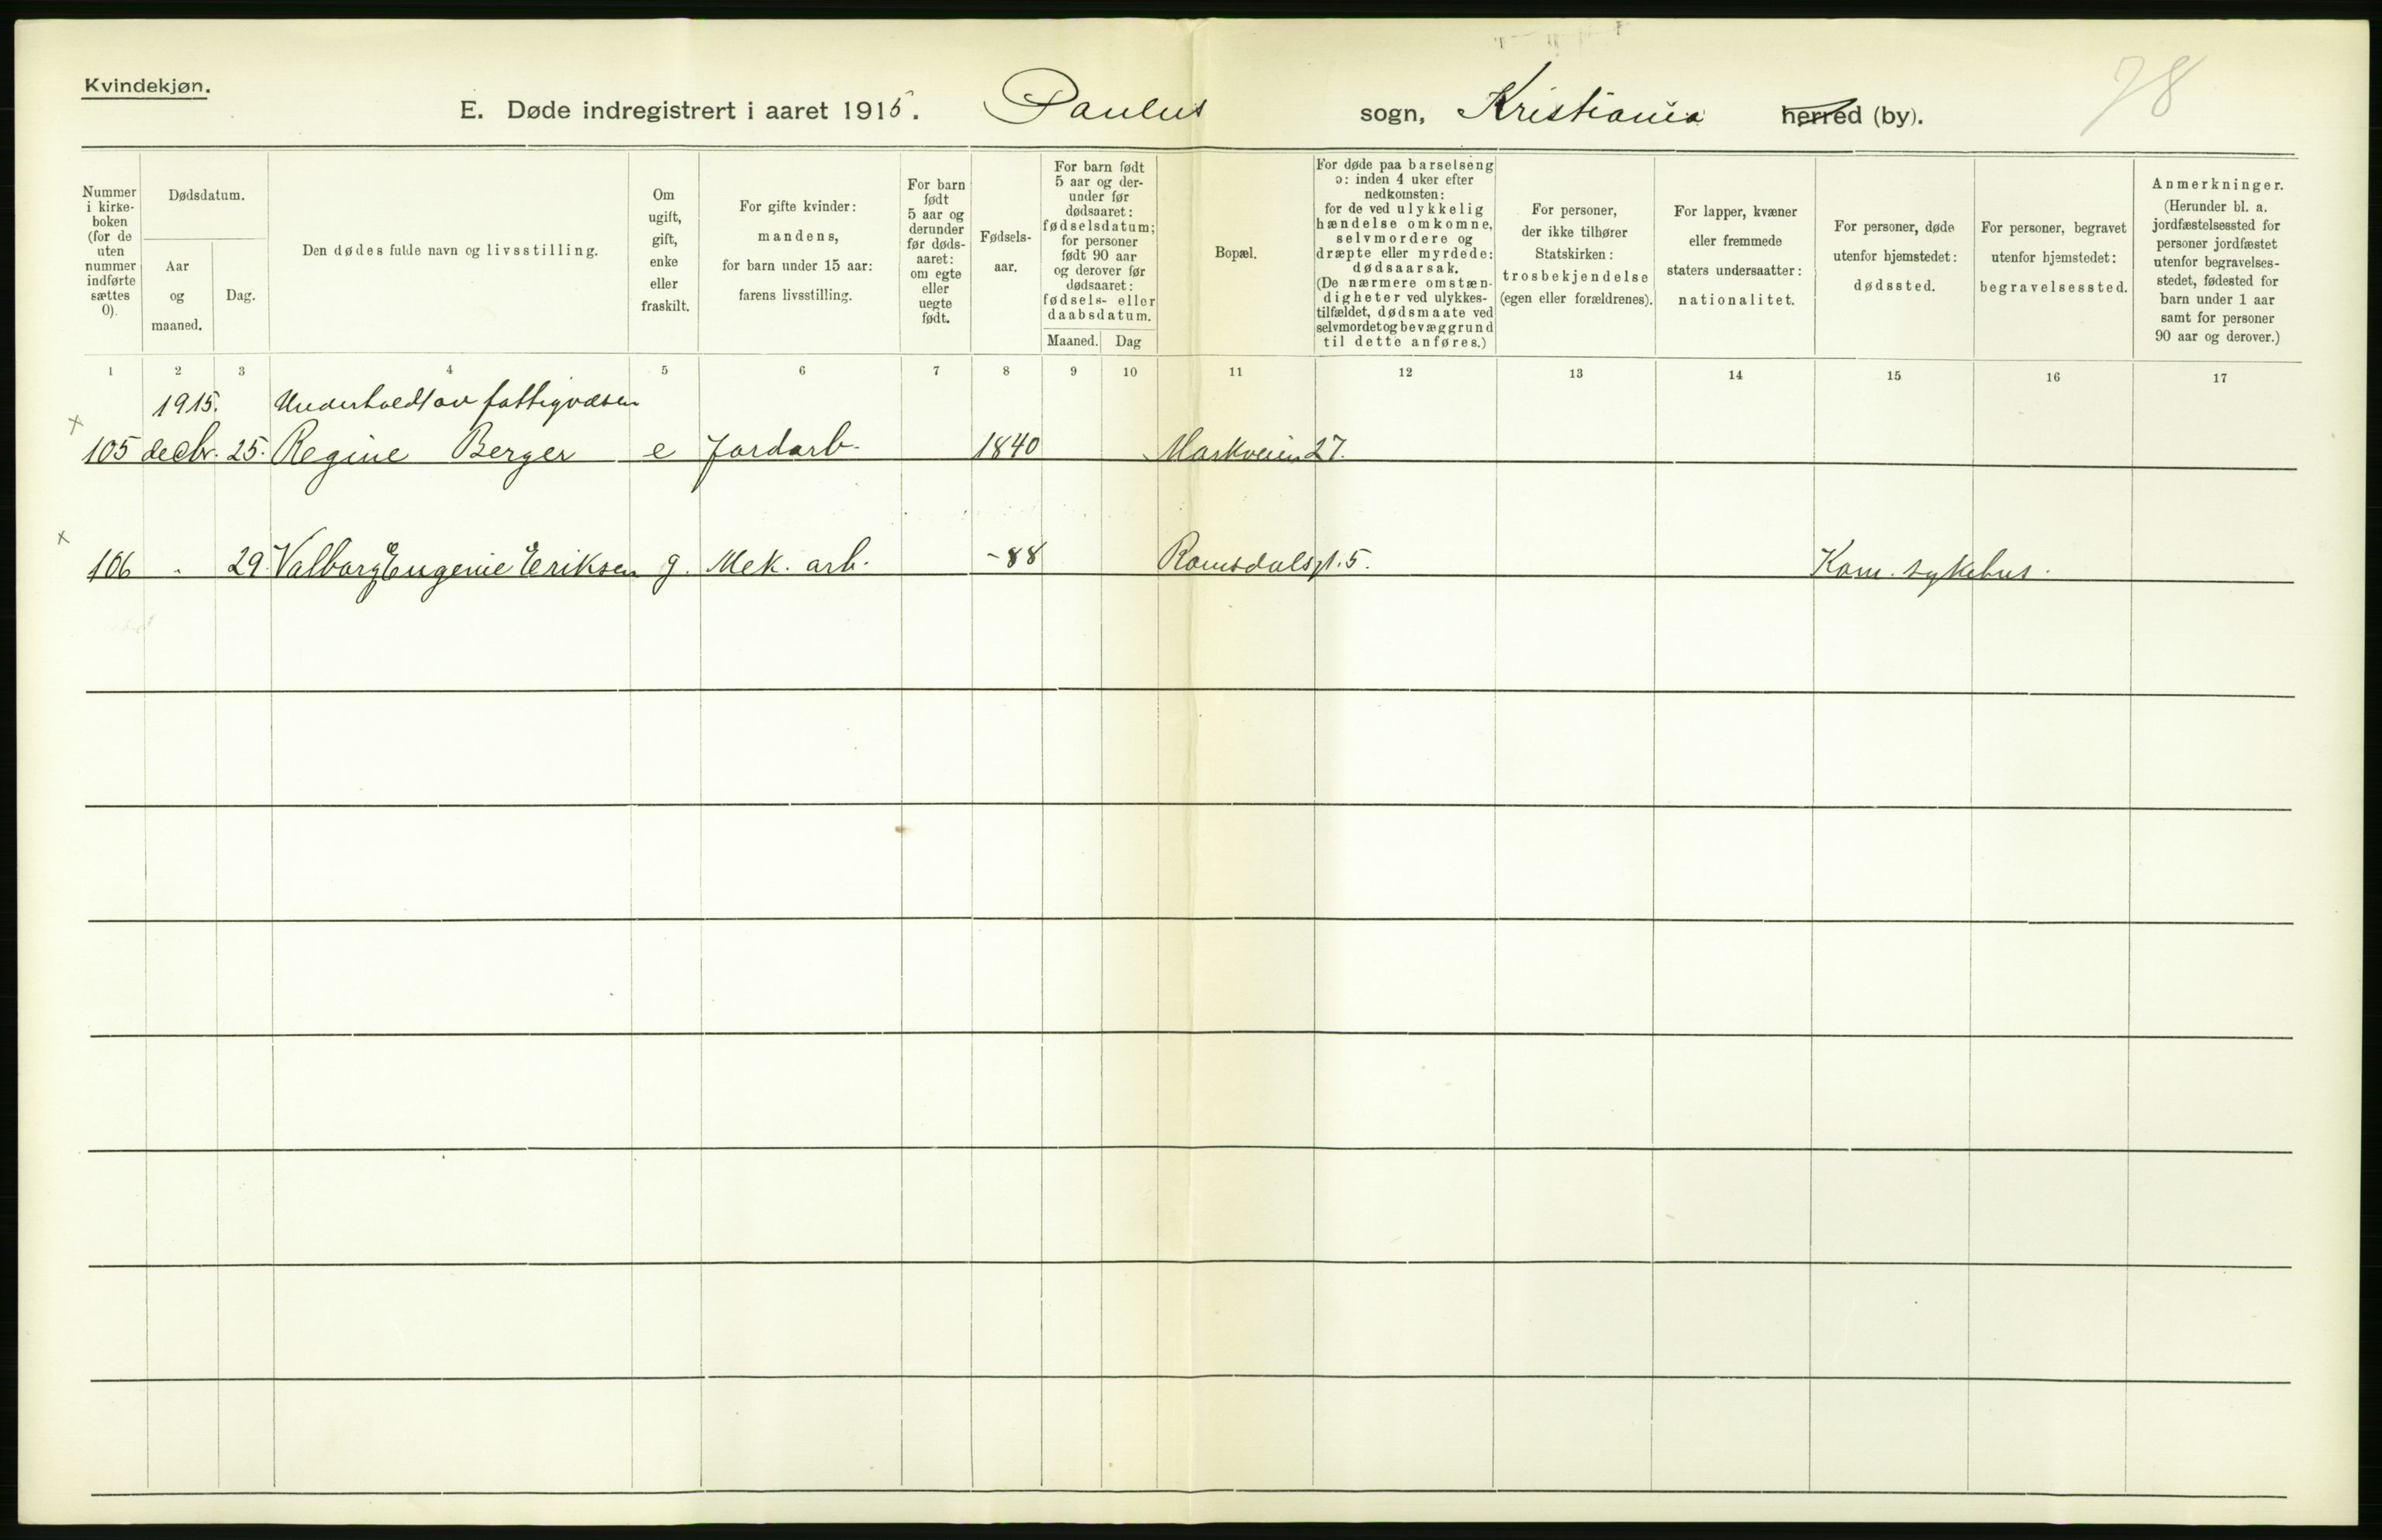 Kvindekjøn.
78
E. Døde indregistrert i aaret 1915. Paulus sogn, Kristiania herred (by).
Nummer i kirke-boken (for de uten nummer indførte sættes 0).
Dødsdatum.
Aar og maaned.
Dag.
Den dødes fulde navn og livsstilling.
Om ugift, gift, enke eller fraskilt.
For gifte kvinder: mandens, for barn under 15 aar: farens livsstilling.
For barn født 5 aar og derunder før døds-aaret: om egte eller uegte født.
Fødsels-aar.
For barn født 5 aar og der-under før dødsaaret: fødselsdatum; for personer født 90 aar og derover før dødsaaret: fødsels- eller daabsdatum.
Maaned. Dag
Bopæl.
For døde paa barselseng ɔ: inden 4 uker efter nedkomsten: for de ved ulykkelig hændelse omkomne, selvmordere og dræpte eller myrdede: dødsaarsak. (De nærmere omstæn-digheter ved ulykkes-tilfældet, dødsmaate ved selvmordet og bevæggrund til dette anføres.)
For personer, der ikke tilhører Statskirken: trosbekjendelse (egen eller forældrenes).
For lapper, kvæner eller fremmede staters undersaatter: nationalitet.
For personer, døde utenfor hjemstedet: dødssted.
For personer, begravet utenfor hjemstedet: begravelsessted.
Anmerkninger. (Herunder bl. a. jordfæstelsessted for personer jordfæstet utenfor begravelses-stedet, fødested for barn under 1 aar samt for personer 90 aar og derover.)
1 2 3 4 5 6 7 8 9 10 11 12 13 14 15 16 17
1915. Underholdt av fattigvæsen
105 decbr. 25. Regine Berger e Jordarb. 1840 Markveien 27.
106 " 29. Valborg Eugenie Eriksen g. Mek. arb. -88 Romsdalsgt. 5. Kom. sykehus.